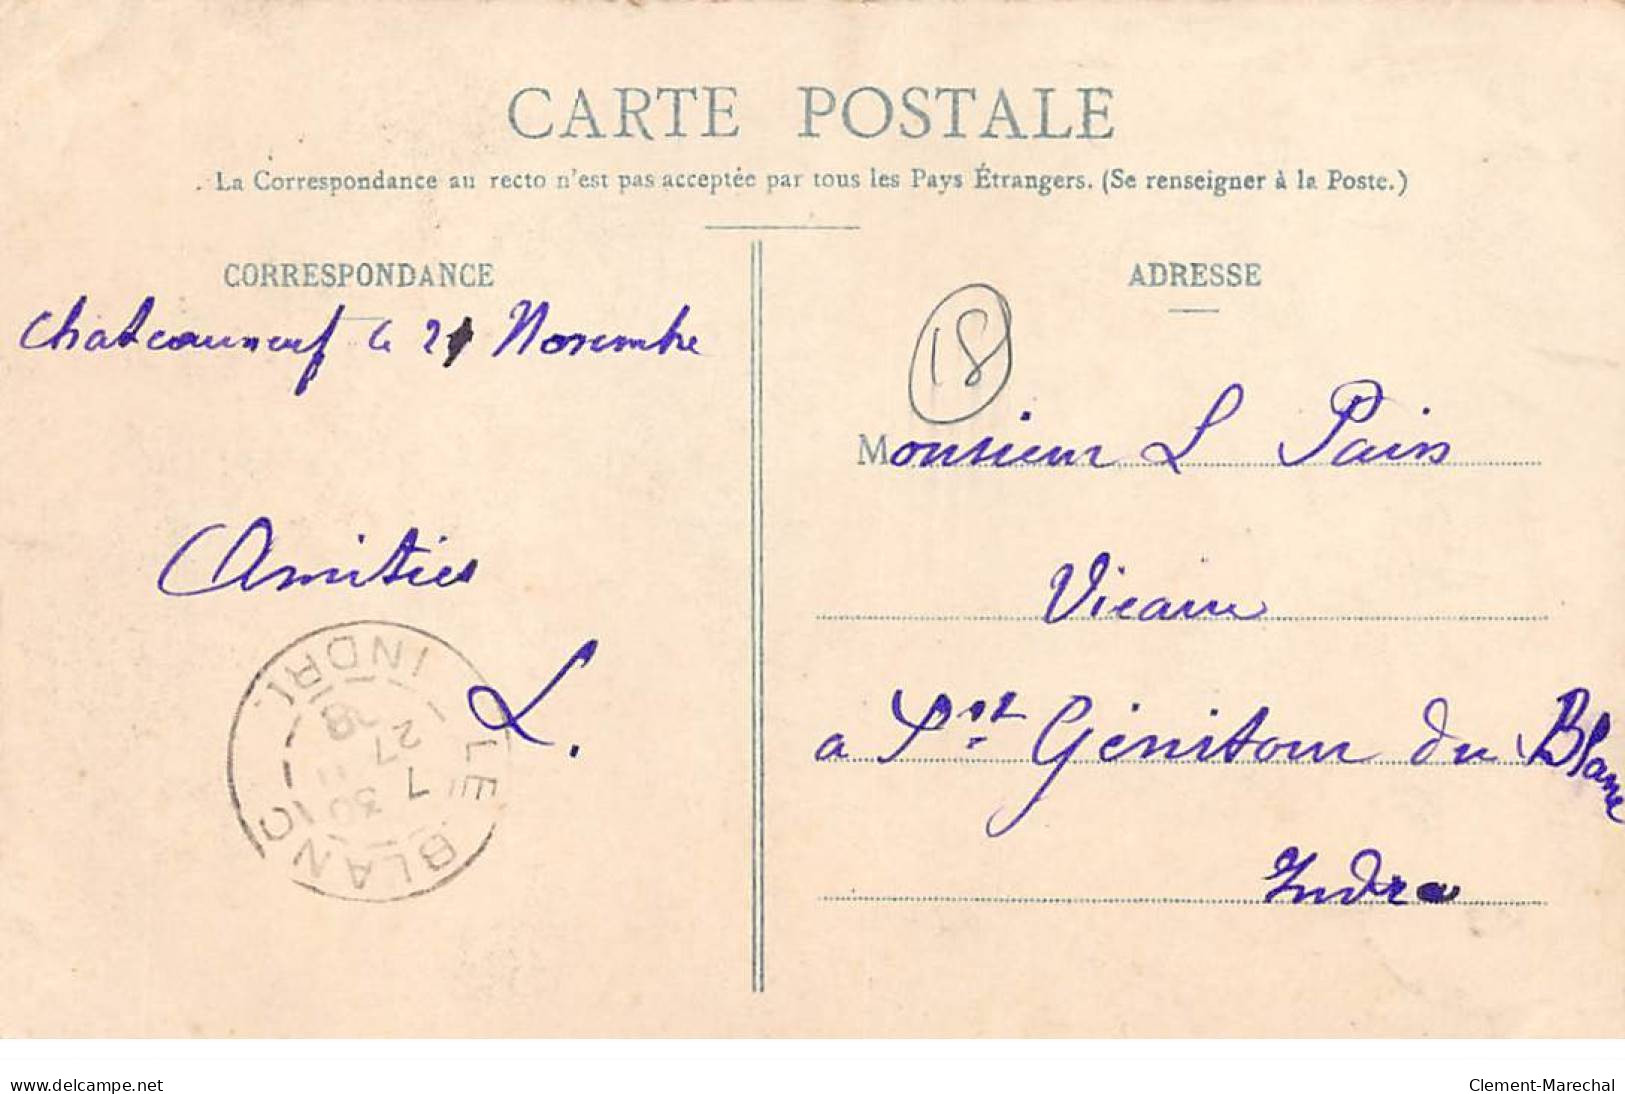 CARTE POSTALE
La Correspondance au recto n'est pas acceptée par tous les Pays Étrangers. (Se renseigner à la Poste.)
CORRESPONDANCE
Chateauneuf le Novembre
Amitiés
L.
LE BLANC
INDRE
7 30
27 11
08
ADRESSE
18
Monsieur L
Vicaire
a St Génitour du Blanc
Indre
www.delcampe.net
Clement-Marechal